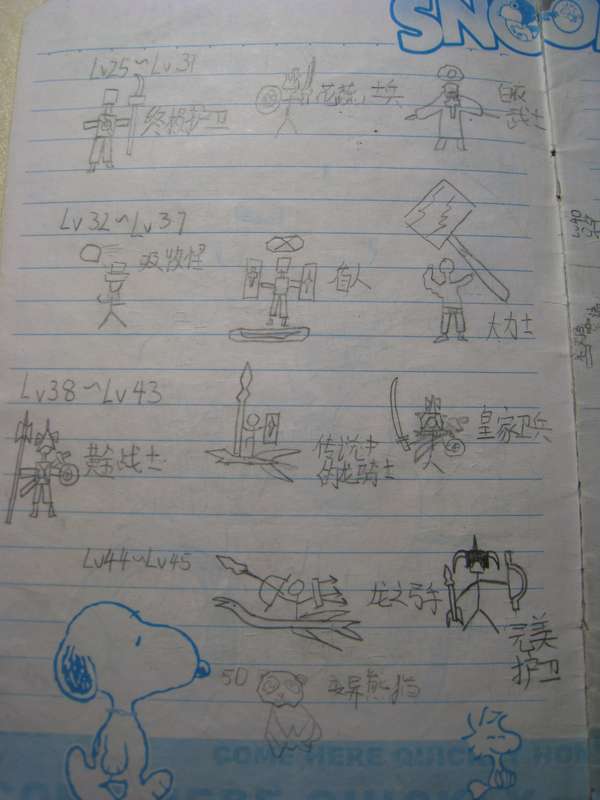 SNOO
Lv25~Lv31
终极护卫
士兵
白衣
战士
Lv32~Lv37
吸收怪
盲人
大力士
Lv38~Lv43
黄金战士
传说
的龙骑士
皇家卫兵
Lv44~Lv45
龙之弓手
完美
护卫
50
变异熊猫
COME HERE QUICK
HOM
COME HERE QUICKLY